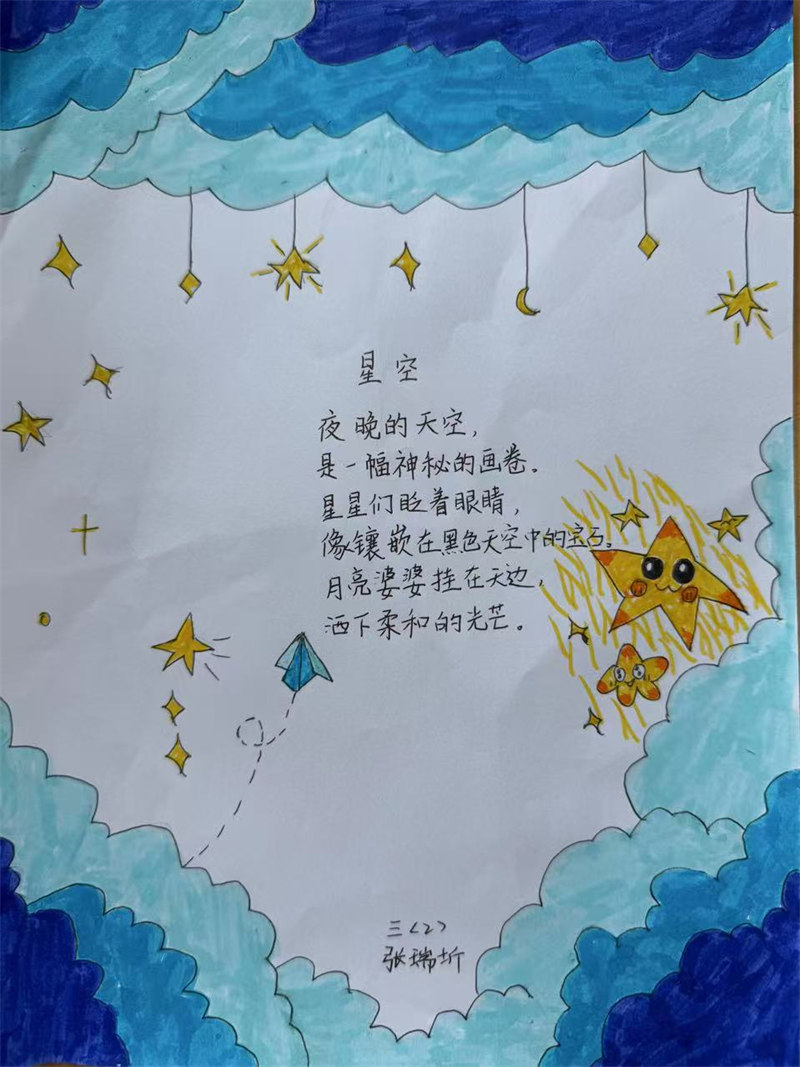 星空
夜晚的天空，
是一幅神秘的画卷。
星星们眨着眼睛，
像镶嵌在黑色天空中的宝石。
月亮婆婆挂在天边，
洒下柔和的光芒。
三〈2〉
张瑞圻